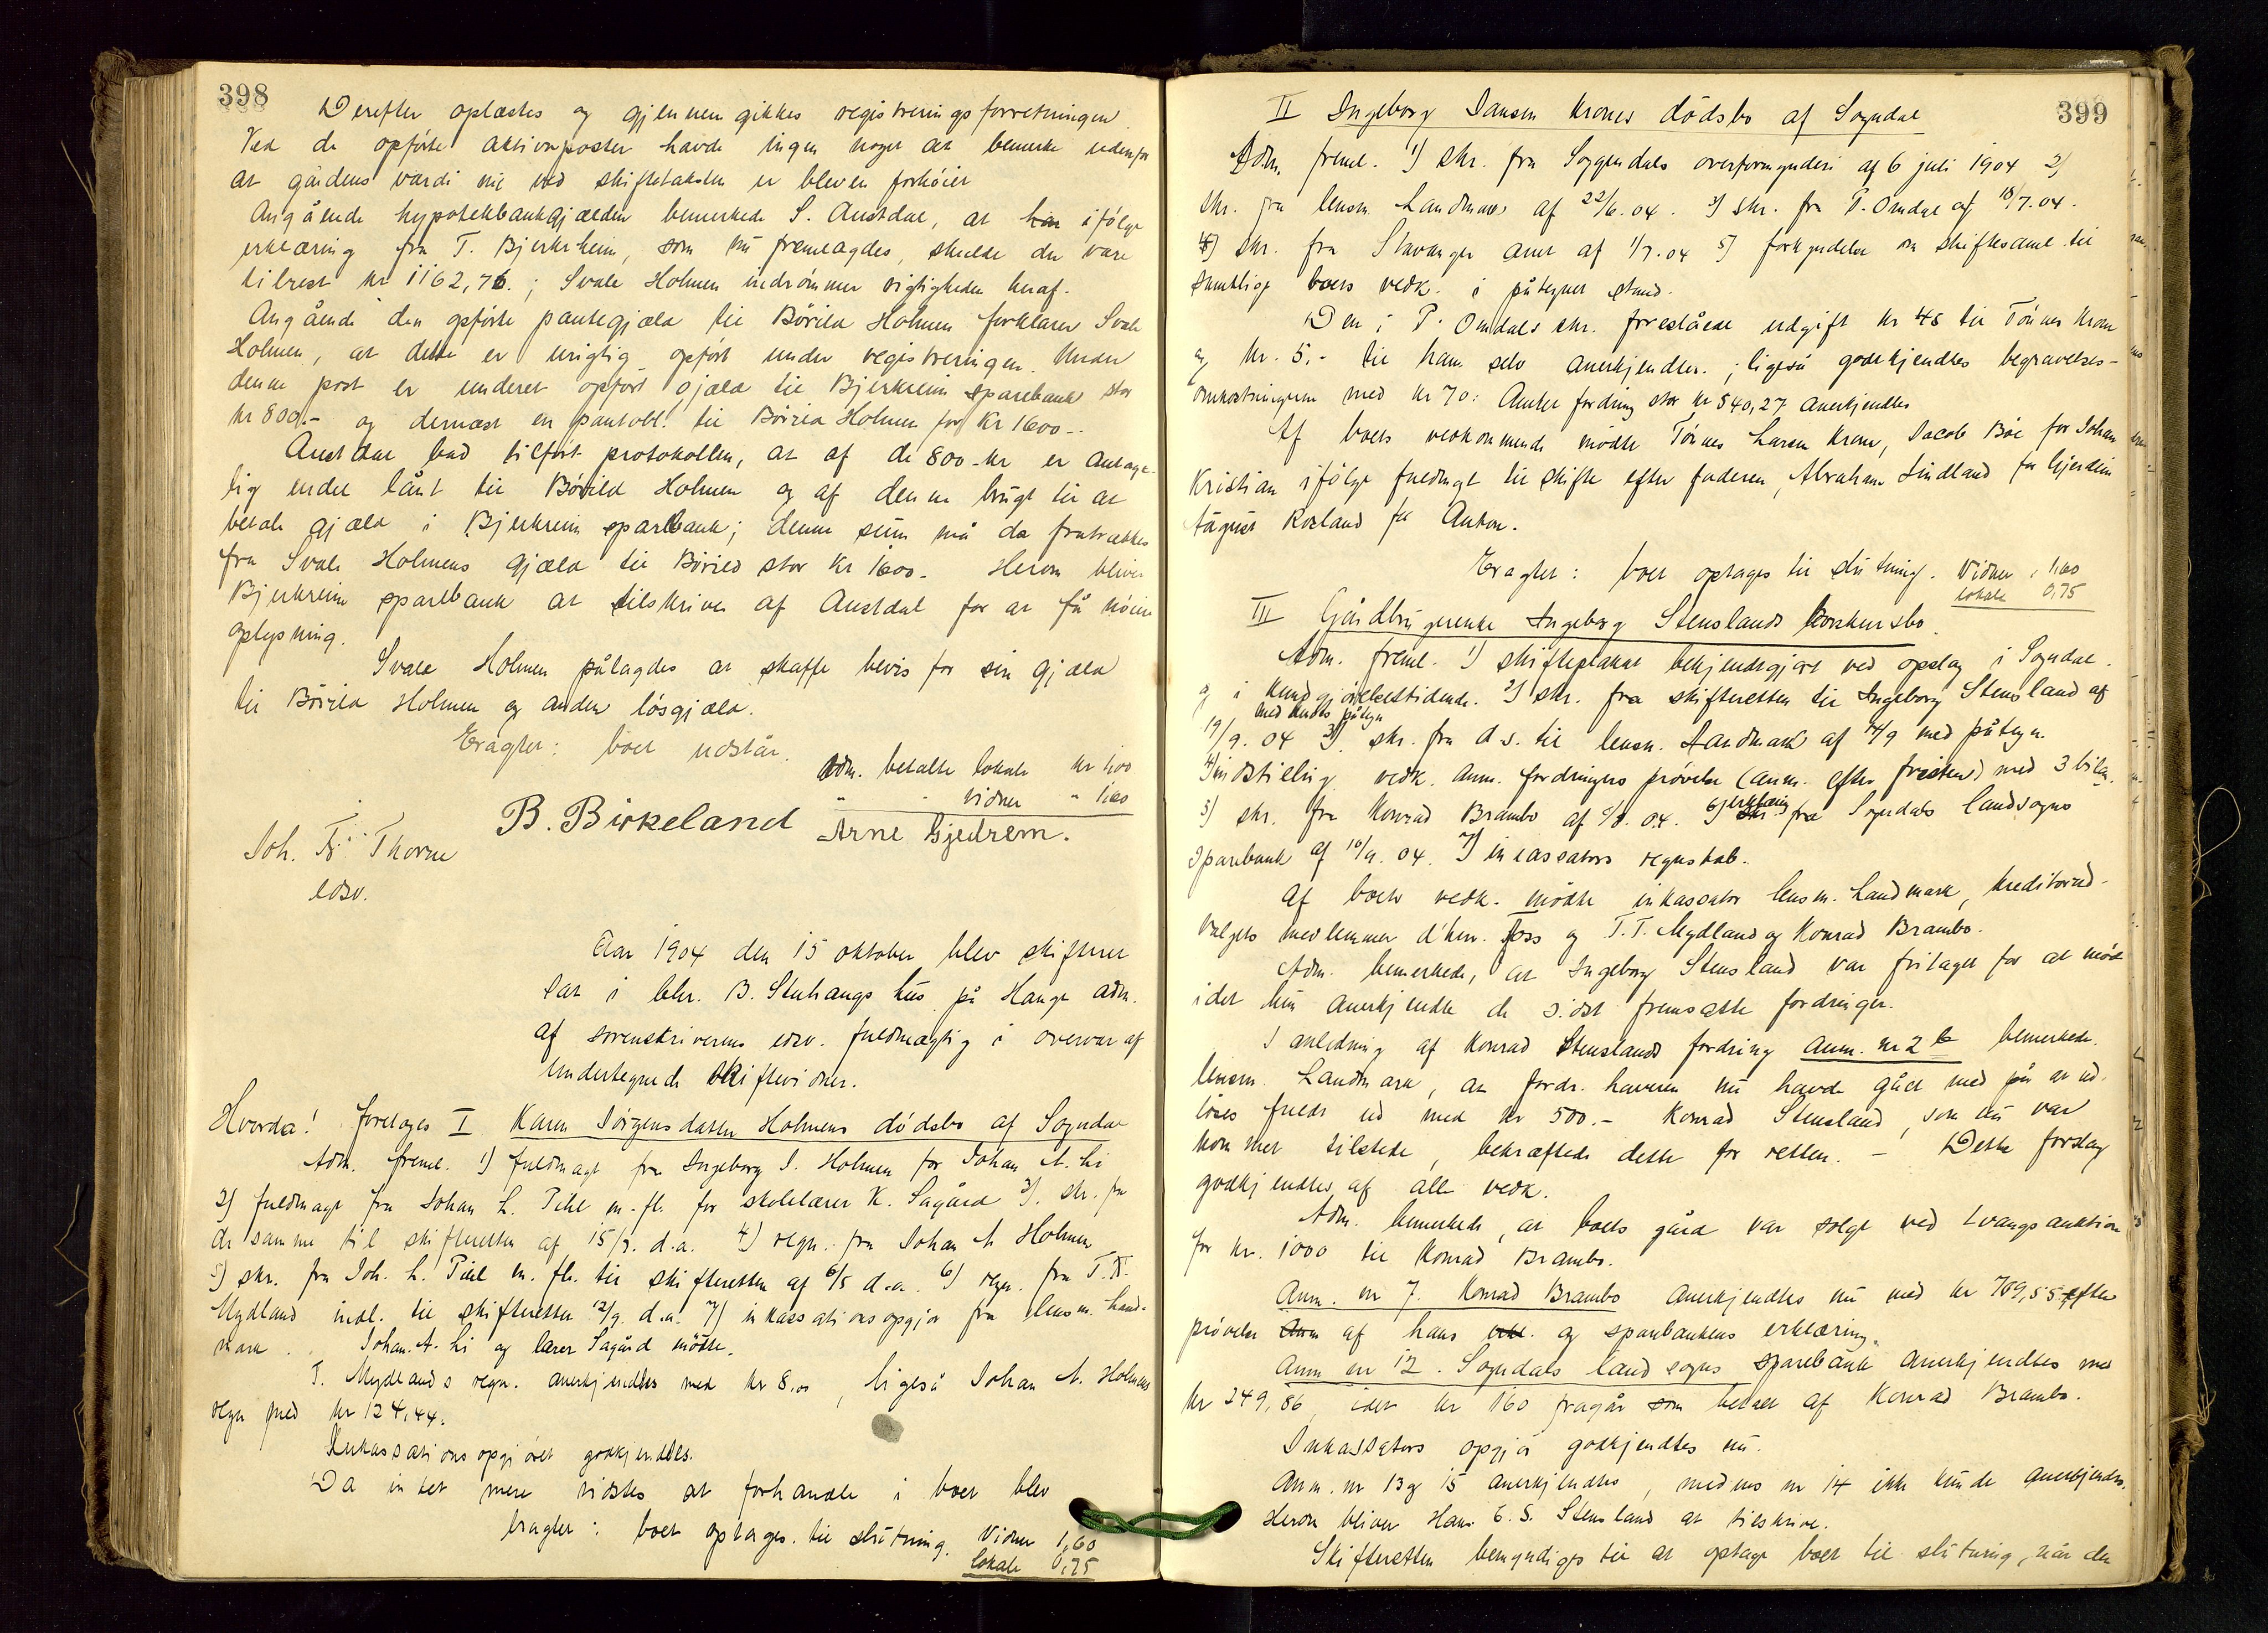 398
Derefter oplæstes og gjennemgikkes registreringsforretningen
Ved de opførte aktivaposter havde ingen noget at bemerke udenfor
at gårdens værdi nu ved skiftetaksten er bleven forhøiet
Angående hypothekbankgjælden bemerkede S. Austdal, at han ifølge
erklæring fra T. Bjerkrheim, som nu fremlagdes, skulde der være
tilrest kr 1162,76.; Svale Holmen indrømmer rigtigheden heraf.
Angående den opførte pantegjæld til Børild Holmen forklarer Svale
Holmen, at dette er urigtig opført under registreringen. Under
denne post er underet opført gjæld til Bjerkreim sparebank stor
kr 800.- og dernæst en pantobl. til Børild Holmen for kr 1600.-
Austdal bad tilført protokollen, at af de 800- kr er antage-
lig endel lånt til Børild Holmen og af denne brugt til at
betale gjæld i Bjerkreim sparebank; denne sum må da fratrækkes
fra Svale Holmens gjæld til Børild stor kr 1600.- Herom bliver
Bjerkreim sparebank at tilskrives af Austdal for at få nøiere
oplysning.
Svale Holmen pålagdes at skaffe bevis for sin gjæld
til Børild Holmen og anden løsgjæld.
Eragtet: boet udstår.
Adm. betalte lokale kr 1,00
" " vidner " 1,60
B. Birkeland Arne Gjedrem.
Joh. Fr. Thorne
edsv.
Aar 1904 den 15 oktober blev skifteret
sat i hhr. B. Stuhaugs hus på Hauge adm.
af sorenskriverens edsv. fuldmægtig i overvær af
undertegnede skiftevidner.
Hvorda! foretoges I Karen Jørgensdatter Holmens dødsbo af Sogndal
Adm. freml. 1) fuldmagt fra Ingeborg J. Holmen for Johan A. Li
2) fuldmagt fra Johan L. Pihl m. fl. for skolelærer K. Sagård 3). skr. fra
de samme til skifteretten af 15/7. d.a. 4) regn. fra Johan A Holmen
5) skr. fra Joh. L. Pihl m. fl. til skifteretten af 6/8 d.a. 6) regn. fra T. T.
Mydland indl. til skifteretten 12/9. d.a. 7) inkassationsopgjør fra lensm. Land-
mark. Johan. A. Li og lærer Sagård mødte.
T. Mydlands regn. anerkjendtes med kr 8.00, ligeså Johan A. Holmens
regn med kr 124,44.
Inkassationsopgjøret godkjendtes.
Da intet mere vidstes at forhandle i boet blev
eragtet: boet optages til slutning. Vidner 1,60
lokale 0,75
399
II Ingeborg Jansen Krones dødsbo af Sogndal
Adm. freml. 1) skr. fra Soggendals overformynderi af 6 juli 1904 2)
skr. fra lensm. Landmark af 22/6.04. 3) skr. fra P. Omdal af 18/7.04.
4) skr. fra Stavanger amt af 1/7.04 5) forkyndelse om skiftesaml. til
samtlige boets vedk. i påtegnet stand.
Den i P. Omdals skr. foreslåede udgift kr 48 til Tønnes Krone
og kr. 5.- til ham selv anerkjendtes.; ligeså godkjendtes begravelses-
omkostningerne med kr 70: Amtets fordring stor kr 540,27 anerkjendtes
Af boets vedkommende mødte Tønnes Larsen Krone, Jacob Bøe for Johan
Kristian ifølge fuldmagt til skifte efter faderen, Abraham Lindland for Gjerdine
August Rosland for Anton.
Eragtet: boet optages til slutning. Vidner 1,60
lokale 0,75
III Gårdbrugerenke Ingeborg Stenslands konkursbo.
Adm. freml. 1) skifteplakat bekjendtgjort ved opslag i Sogndal.
og i Kundgjørelsestidende. 2) skr. fra skifteretten til Ingeborg Stensland af
19/9.04 med hendes påtegn 3). skr. fra d.s. til lensm. Landmark af 14/9 med påtegn.
4) indstilling vedk. anm. fordringers prøvelse (anm. efter fristen) med 3 bilag.
5) skr. fra Konrad Brambo af 5/8.04. 6) erklæring fra Sogndals landsogns
Sparebank af 10/9.04. 7) incassators regnskab.
Af boets vedk. mødte inkassator lensm. Landmark, kreditorud-
valgets medlemmer d'hrr. Foss og T. T. Mydland og Konrad Brambo.
Adm. bemerkede, at Ingeborg Stensland var fritaget for at møde
idet hun anerkjendte de sidst fremsatte fordringer.
I anledning af Konrad Stenslands fordring anm. nr 2 b bemerkede.
lensm. Landmark, at fordr. haveren nu havde gået med på at ud-
løses fuldt ud med kr 500.- Konrad Stensland, som nu var
kommet tilstede, bekræftede dette for retten. - Dette forslag
godkjendtes af alle vedk.
Adm. bemerkede, at boets gård var solgt ved tvangsauktion
for kr. 1000 til Konrad Brambo.
Anm. nr 7. Konrad Brambo anerkjendtes nu med kr 709,55 efter
prøvelse af hans og sparebankens erklæring.
Anm nr 12. Sogndals landsogns sparebank anerkjendtes med
kr 249,86, idet kr 160 fragår som betalt af Konrad Brambo.
Inkassators opgjør godkjendtes nu.
Anm. nr 13 og 15 anerkjendtes, medens nr 14 ikke kunde anerkjendes.
Herom bliver Hans E. S. Stensland at tilskrive.
Skifteretten bemyndiges til at optage boet til slutning, når den